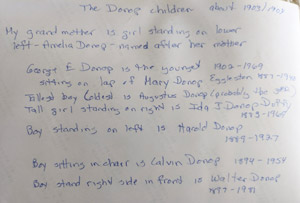 The Donop children about 1903/1904
My grandmother is girl standing on lower
left - Amelia Donop - named after her mother
George E Donop is the youngest 1902-1969
sitting on lap of Mary Donop Eggleston
Tallest boy (oldest is Augustus Donop (probably the
Tall girl standing on right is Ida I. Donop
Boy standing on left is Harold Donop
1889-1927
Boy sitting in chair is Calvin Donop 1894-1954
Boy stand right side in front is Walter Donop
1897-1981